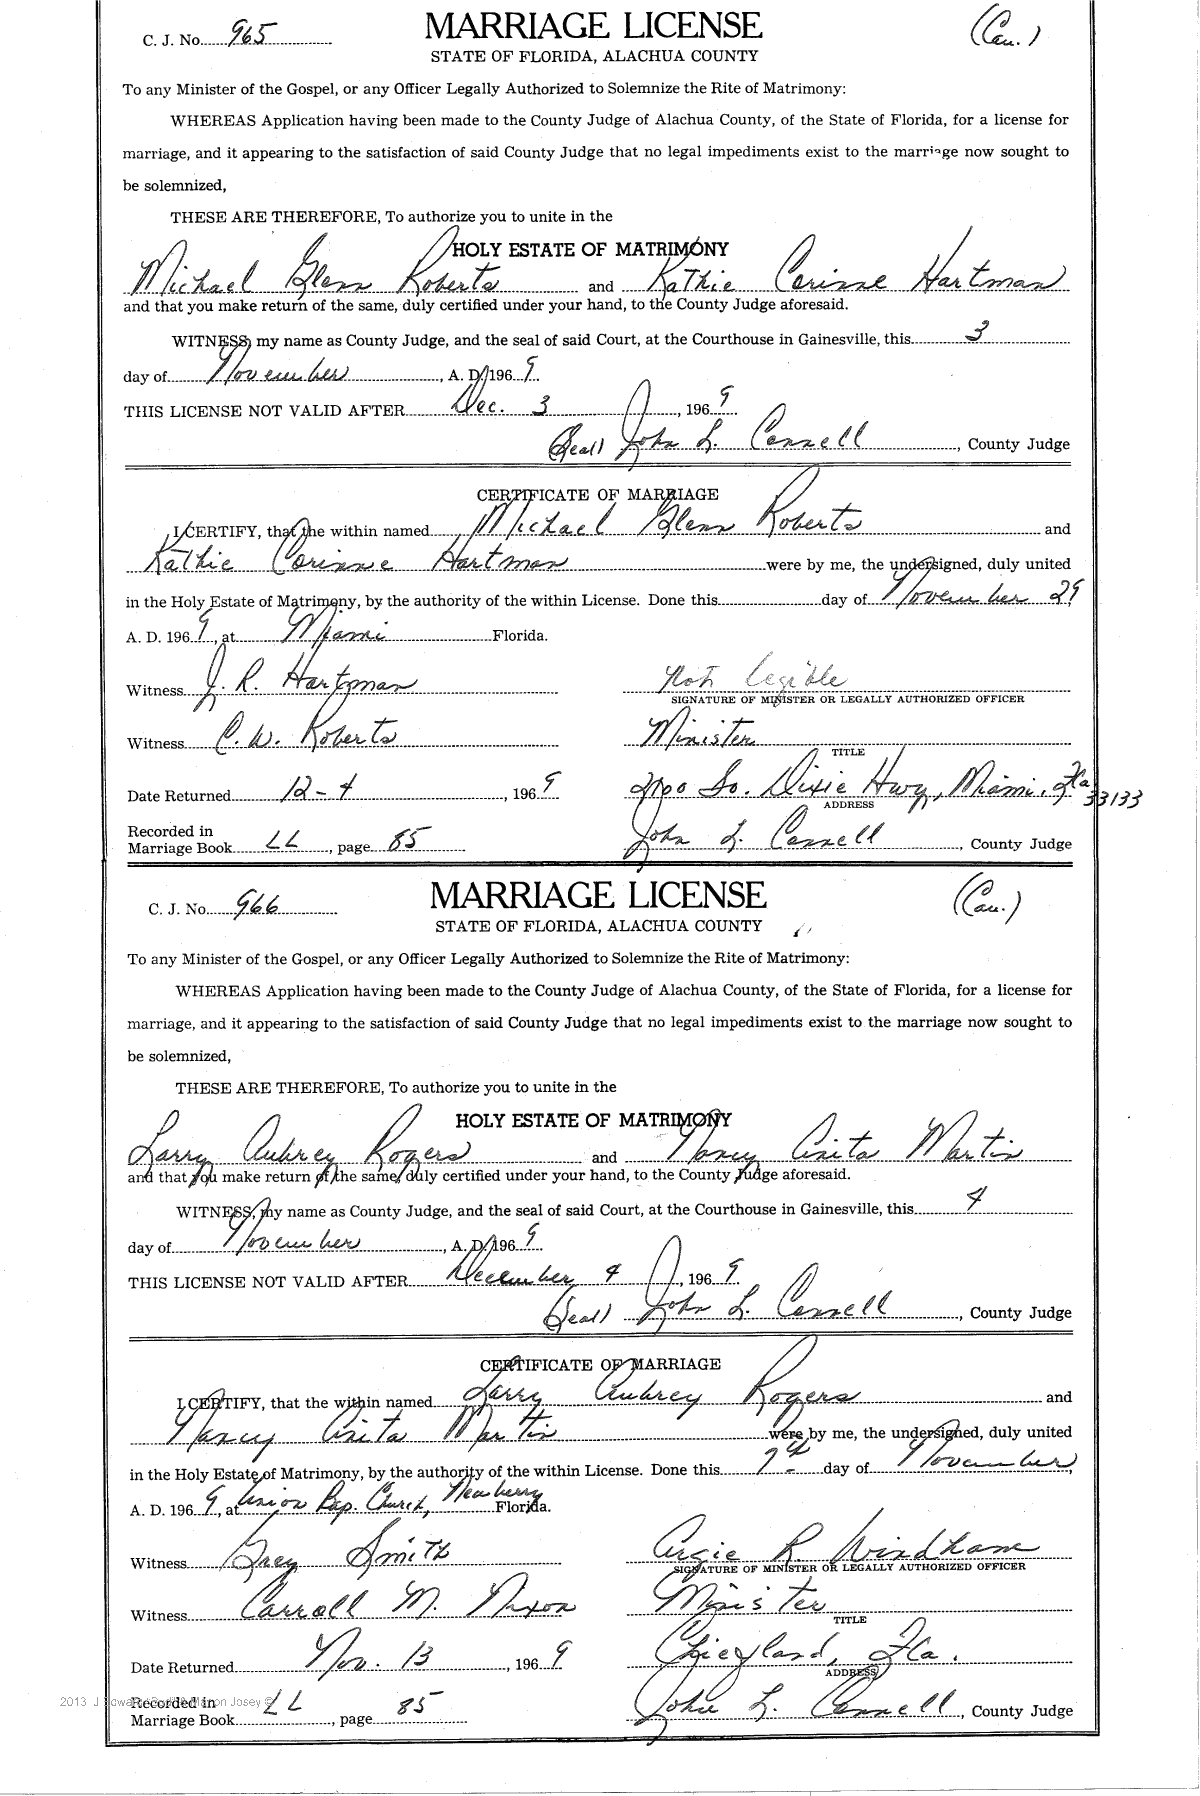 C. J. No. 965 MARRIAGE LICENSE (Cau.)
STATE OF FLORIDA, ALACHUA COUNTY
To any Minister of the Gospel, or any Officer Legally Authorized to Solemnize the Rite of Matrimony:
WHEREAS Application having been made to the County Judge of Alachua County, of the State of Florida, for a license for
marriage, and it appearing to the satisfaction of said County Judge that no legal impediments exist to the marriage now sought to
be solemnized,
THESE ARE THEREFORE, To authorize you to unite in the
HOLY ESTATE OF MATRIMONY
Michael Glenn Roberts and Kathie Corinne Hartman
and that you make return of the same, duly certified under your hand, to the County Judge aforesaid.
WITNESS, my name as County Judge, and the seal of said Court, at the Courthouse in Gainesville, this 3
day of November, A. D. 1969.
THIS LICENSE NOT VALID AFTER Dec. 3, 1969
(Seal) John L. Connell, County Judge
CERTIFICATE OF MARRIAGE
I CERTIFY, that the within named Michael Glenn Roberts and
Kathie Corinne Hartman were by me, the undersigned, duly united
in the Holy Estate of Matrimony, by the authority of the within License. Done this day of November 29
A. D. 1969, at Miami Florida.
Witness J. R. Hartman Not legible
SIGNATURE OF MINISTER OR LEGALLY AUTHORIZED OFFICER
Witness C. W. Roberts Minister
TITLE
Date Returned 12-4, 1969 2700 So. Dixie Hwy, Miami, Fla 33133
ADDRESS
Recorded in
Marriage Book LL, page 85 John L. Connell, County Judge
C. J. No. 966 MARRIAGE LICENSE (Cau.)
STATE OF FLORIDA, ALACHUA COUNTY
To any Minister of the Gospel, or any Officer Legally Authorized to Solemnize the Rite of Matrimony:
WHEREAS Application having been made to the County Judge of Alachua County, of the State of Florida, for a license for
marriage, and it appearing to the satisfaction of said County Judge that no legal impediments exist to the marriage now sought to
be solemnized,
THESE ARE THEREFORE, To authorize you to unite in the
HOLY ESTATE OF MATRIMONY
Larry Aubrey Rogers and Nancy Anita Martin
and that you make return of the same, duly certified under your hand, to the County Judge aforesaid.
WITNESS, my name as County Judge, and the seal of said Court, at the Courthouse in Gainesville, this 4
day of November, A. D. 1969.
THIS LICENSE NOT VALID AFTER December 4, 1969.
(Seal) John L. Connell, County Judge
CERTIFICATE OF MARRIAGE
I CERTIFY, that the within named Larry Aubrey Rogers and
Nancy Anita Martin were by me, the undersigned, duly united
in the Holy Estate of Matrimony, by the authority of the within License. Done this 7th day of November,
A. D. 1969, at Union Bap. Church, Newberry Florida.
Witness Greg Smith Argie R. Windham
SIGNATURE OF MINISTER OR LEGALLY AUTHORIZED OFFICER
Witness Carroll M. Nixon Minister
TITLE
Date Returned Nov. 13, 1969 Chiefland, Fla.
ADDRESS
Recorded in
Marriage Book LL, page 85 John L. Connell, County Judge